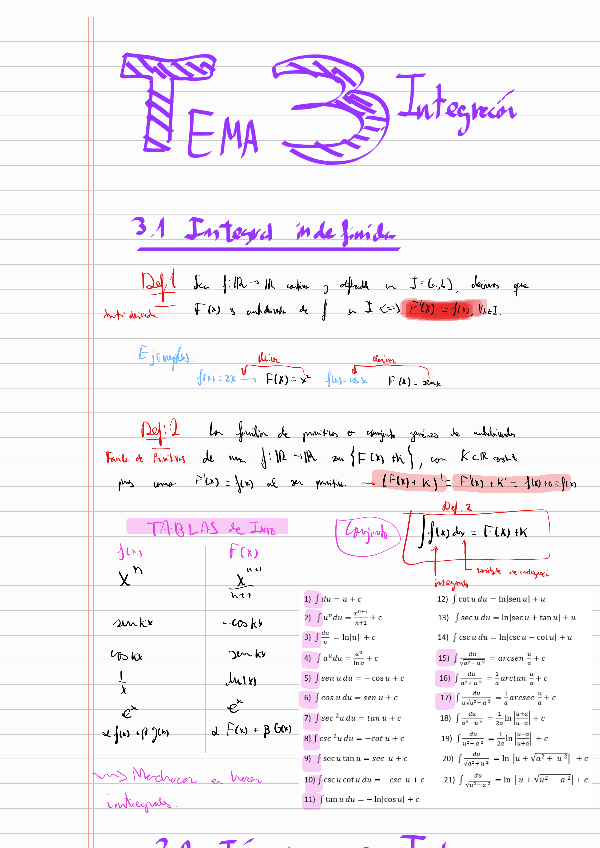 TEMA 3 Integración
3.1 Integral indefinida
Def.1 Sea f: ℝ → ℝ continua y definida en I = (a,b), decimos que
Antiderivada F(x) es antiderivada de f en I <=> F'(x) = f(x), ∀x∈I.
Ejemplos. deriva deriva
f(x) = 2x → F(x) = x² f(x) = cosx F(x) = senx
Def:2 La función de primitivas o conjunto general de antiderivadas
Familia de Primitivas de una f: ℝ → ℝ son {F(x) + K}, con K∈ℝ
pues como F'(x) = f(x) al ser primitiva → (F(x) + K)' = F'(x) + K' = f(x) + 0 = f(x)
TABLAS de Inm. Conjunto Def. 2
∫ f(x) dx = F(x) + K
integrando variable de integración
f(x) F(x)
xⁿ xⁿ⁺¹/n+1
sen kx -cos kx
cos kx sen kx
1/x ln(x)
eˣ eˣ
α f(x) + β g(x) α F(x) + β G(x)
Machacar en hacer
integrales.
1) ∫ du = u + c
2) ∫ uⁿ du = uⁿ⁺¹/n+1 + c
3) ∫ du/u = ln|u| + c
4) ∫ aᵘ du = aᵘ/ln a + c
5) ∫ sen u du = − cos u + c
6) ∫ cos u du = sen u + c
7) ∫ sec ²u du = tan u + c
8) ∫ csc ²u du = −cot u + c
9) ∫ sec u tan u = sec u + c
10) ∫ csc u cot u du = csc u + c
11) ∫ tan u du = − ln|cos u| + c
12) ∫ cot u du = ln|sen u| + u
13) ∫ sec u du = ln|sec u + tan u| + u
14) ∫ csc u du = ln|csc u − cot u| + u
15) ∫ du/√a²−u² = arcsen u/a + c
16) ∫ du/a²+u² = 1/a arctan u/a + c
17) ∫ du/u√u²−a² = 1/a arcsec u/a + c
18) ∫ du/a²−u² = 1/2a ln |u+a/u−a| + c
19) ∫ du/u²−a² = 1/2a ln |u−a/u+a| + c
20) ∫ du/√a²+u² = ln |u + √a² + u²| + c
21) ∫ du/√u²−a² = ln |u + √u² a²| + c